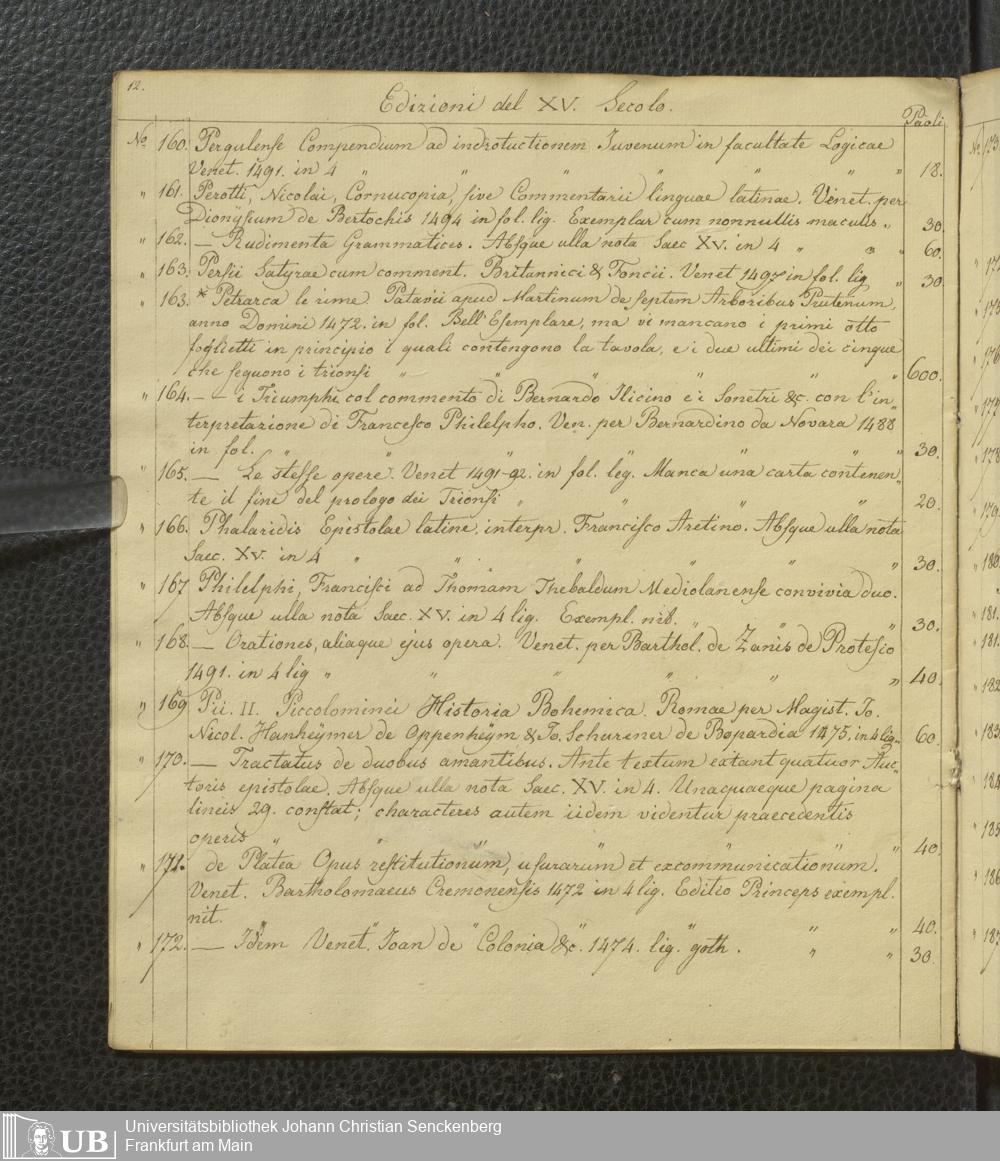 12.
Edizioni del XV. Secolo.
Paoli
No. 160. Pergulense Compendium ad indrotuctionem Juvenum in facultate Logicae
Venet. 1491. in 4 " " " " " " 18.
" 161. Perotti, Nicolai, Cornucopia, sive Commentarii linguae latinae. Venet. per
Dionÿsium de Bertochis 1494 in fol. lig. Exemplar cum nonnullis maculis " 30.
" 162. — Rudimenta Grammatices. Absque ulla nota Saec XV. in 4 " " " 60.
" 163. Persii Satyrae cum comment. Britannici & Foncii. Venet 1497 in fol. lig " 30.
" 163. * Petrarca le rime. Patavii apud Martinum de septem Arboribus Prutenum,
anno Domini 1472. in fol. Bell' Esemplare, ma vi mancano i primi otto
foglietti in principio i quali contengono la tavola, e i due ultimi dei cinque
che seguono i trionfi " " " " " " 600.
" 164. — i Triumphi, col commento di Bernardo Ilicino e i Sonetri &c. con l'in
terpretazione di Francesco Philelpho. Ven. per Bernardino da Novara 1488
in fol. " " " " " " 30.
" 165. — Le stesse opere. Venet 1491-92. in fol. leg. Manca una carta contenen
te il fine del prologo dei Trionfi " " " " 20.
" 166. Phalaridis Epistolae latine, interpr. Francisco Aretino. Absque ulla nota
Saec. XV. in 4 " " " " " " 30.
" 167 Philelphi, Francisci ad Thomam Thebaldum Mediolanense convivia duo.
Absque ulla nota Saec. XV. in 4 lig. Exempl. nit. " " 30.
" 168. — Orationes, aliaque ejus opera. Venet. per Barthol. de Zanis de Protesio
1491. in 4 lig " " " " " " 40.
" 169 Pii. II. Piccolominei Historia Bohemica. Romae per Magist. Jo.
Nicol. Hanheÿmer de Oppenheÿm & Jo. Schurener de Bopardia 1475. in 4 lig. " 60.
" 170. — Tractatus de duobus amantibus. Ante textum extant quatuor Auc-
toris epistolae. Absque ulla nota Saec. XV. in 4. Unaquaeque pagina
lineis 29. constat; characteres autem iidem videntur praecedentis
operis " " " " " " 40
" 171. de Platea Opus restitutionum, usurarum et excommunicationum.
Venet. Bartholomaeus Cremonensis 1472 in 4 lig. Editio Princeps exempl.
nit. " " " " " " 40.
" 172. — Idem Venet. Joan de Colonia &c. 1474. lig. goth. " " 30.
UB
Universitätsbibliothek Johann Christian Senckenberg
Frankfurt am Main